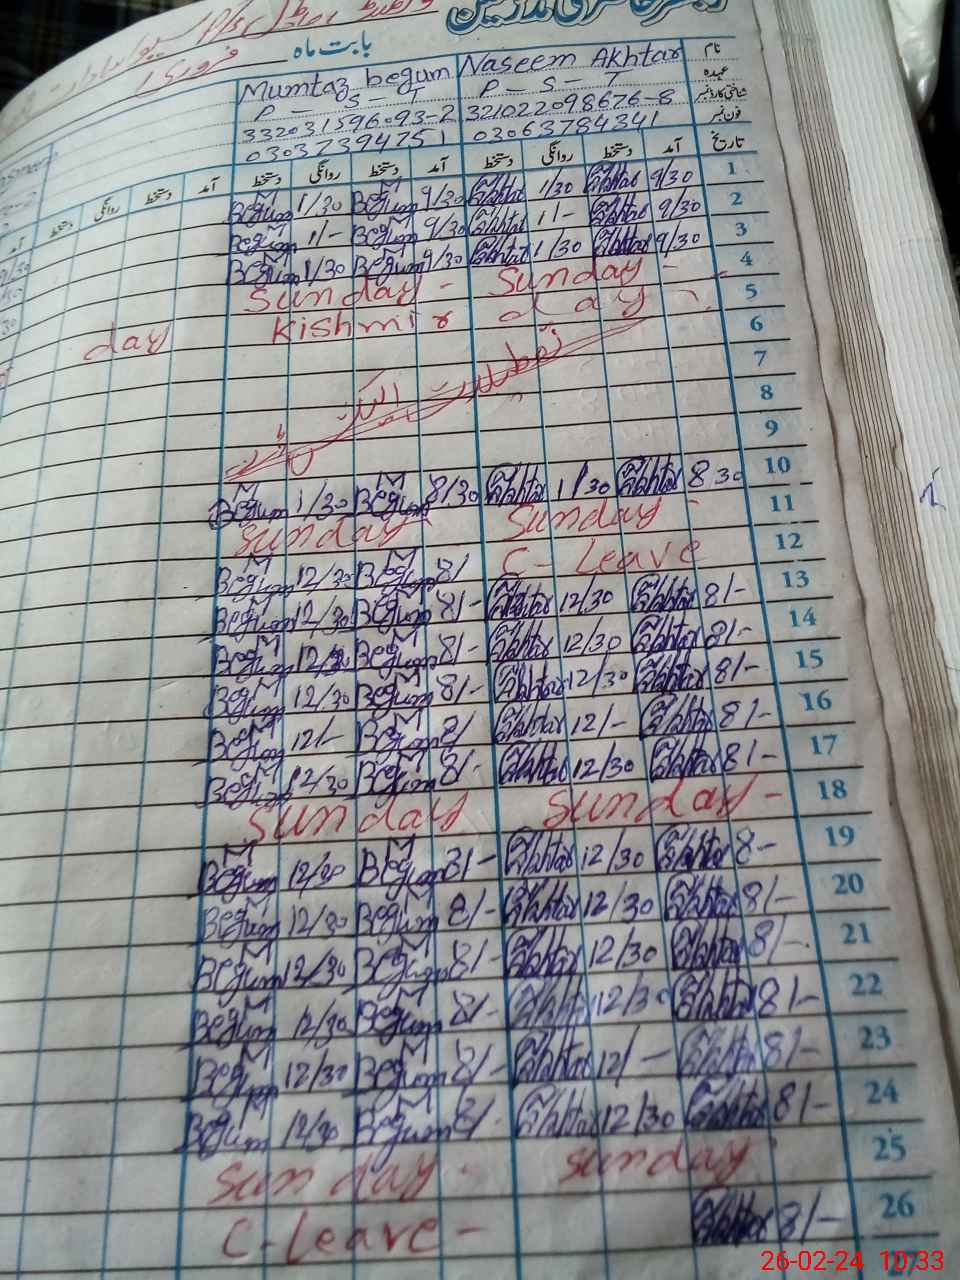 بابت ماہ فروری
نام Naseem Akhtar Mumtaz begum
عہدہ P - S - T P - S - T
شناختی کارڈ نمبر 321022098676-8 332031596093-2
فون نمبر 03063784341 03037394751
تاریخ آمد دستخط روانگی دستخط آمد دستخط روانگی دستخط آمد دستخط روانگی دستخط
1 9/30 Akhtar 1/30 Akhtar 9/30 Begum 1/30 Begum
2 9/30 Akhtar 1/- Akhtar 9/30 Begum 1/- Begum
3 9/30 Akhtar 1/30 Akhtar 9/30 Begum 1/30 Begum
4 Sunday - Sunday -
5 Kishmir day day
6
7
8
9
10 8 30 Akhtar 1/30 Akhtar 8/30 Begum 1/30 Begum
11 Sunday - Sunday
12 C - Leave 8/ Begum 12/30 Begum
13 8/- Akhtar 12/30 Akhtar 8/- Begum 12/30 Begum
14 8/- Akhtar 12/30 Akhtar 8/- Begum 12/30 Begum
15 8/- Akhtar 12/30 Akhtar 8/- Begum 12/30 Begum
16 8/- Akhtar 12/- Akhtar 8/ Begum 12/- Begum
17 8/- Akhtar 12/30 Akhtar 8/- Begum 12/30 Begum
18 Sunday - Sunday
19 8-- Akhtar 12/30 Akhtar 8/- Begum 12/30 Begum
20 8/- Akhtar 12/30 Akhtar 8/- Begum 12/30 Begum
21 8/- Akhtar 12/30 Akhtar 8/- Begum 12/30 Begum
22 8/- Akhtar 12/30 Akhtar 8/- Begum 12/30 Begum
23 8/- Akhtar 12/- Akhtar 8/- Begum 12/30 Begum
24 8/- Akhtar 12/30 Akhtar 8/- Begum 12/30 Begum
25 Sunday Sunday -
26 8/- Akhtar C - Leave -
26-02-24 10:33